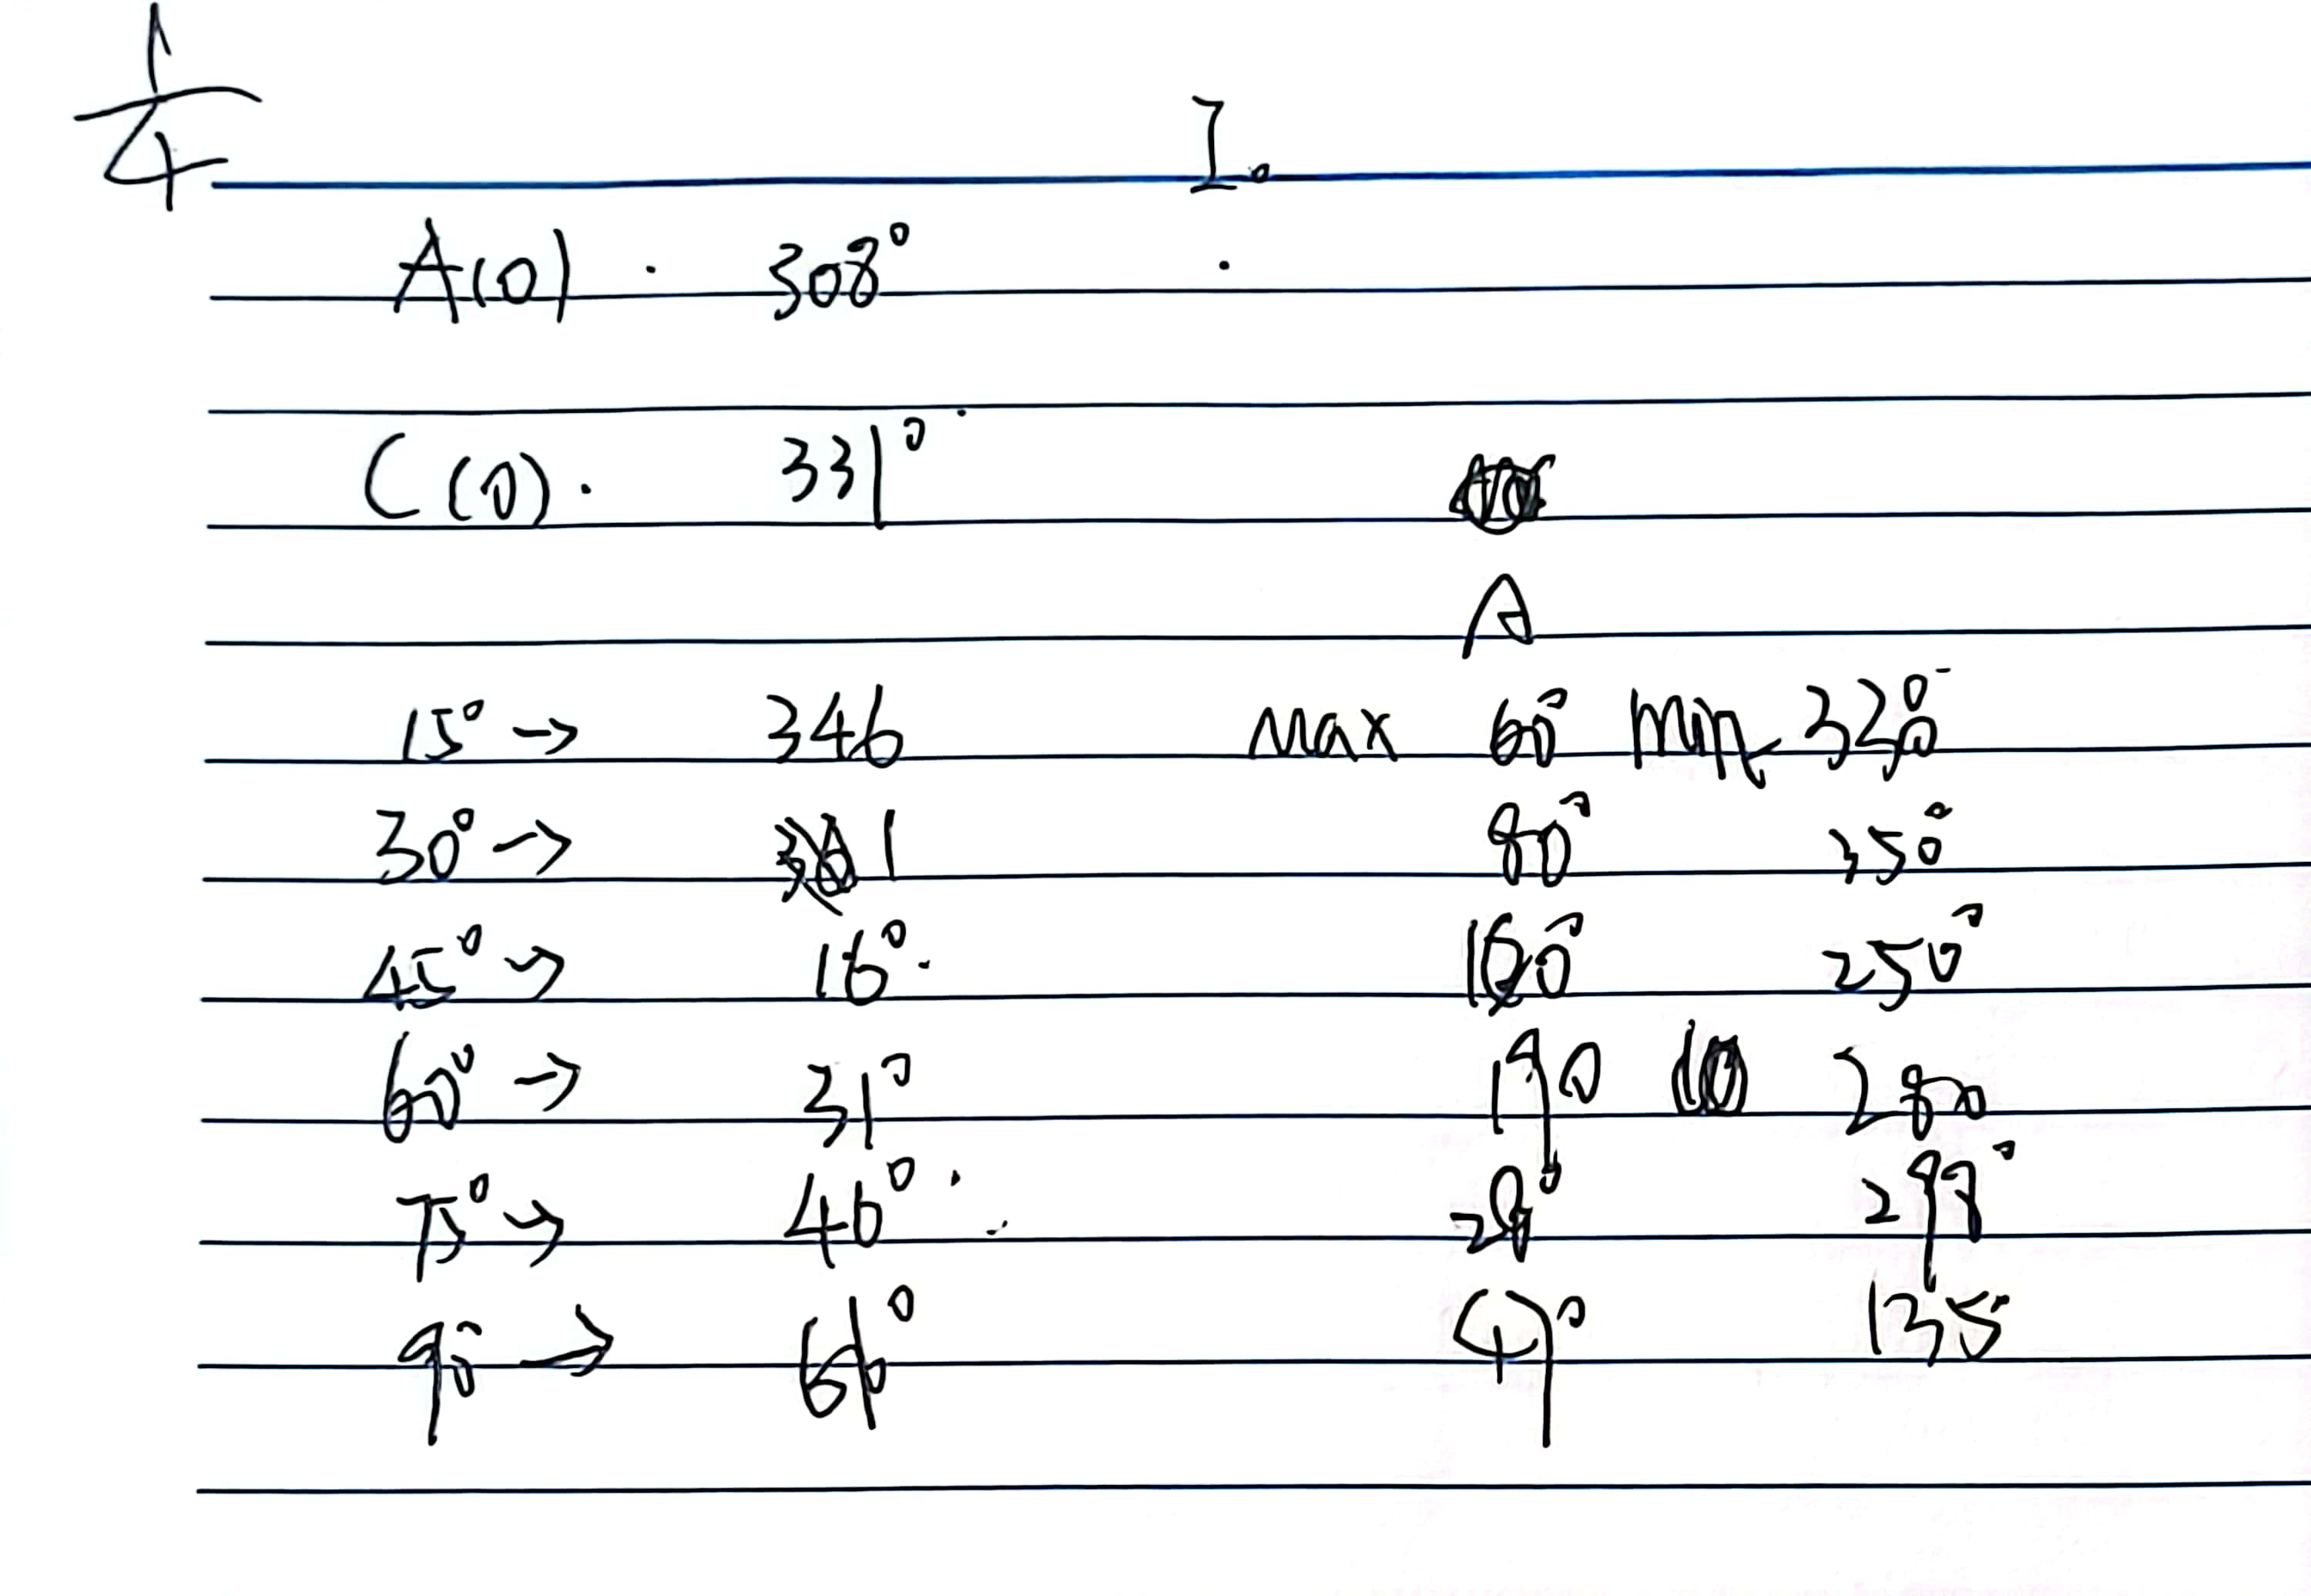 1/4
I₀
A(0) . 308°
C(0). 331°
A
15° → 346 Max 60° Min 320°
30° → 1 80° 350°
45° → 16°. 250°
60° → 31° 190 280
75° → 46°. 28° 298°
90° → 61° 49° 135°